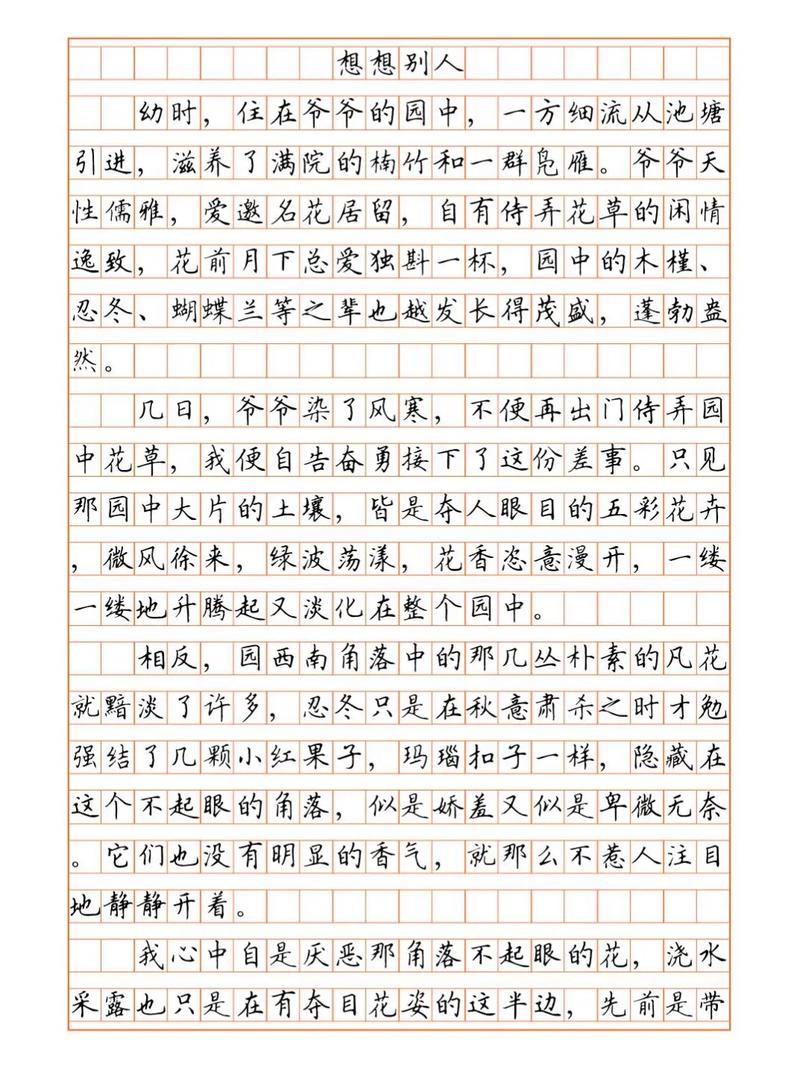 想想别人
幼时，住在爷爷的园中，一方细流从池塘
引进，滋养了满院的楠竹和一群凫雁。爷爷天
性儒雅，爱邀名花居留，自有侍弄花草的闲情
逸致，花前月下总爱独斟一杯，园中的木槿、
忍冬、蝴蝶兰等之辈也越发长得茂盛，蓬勃盎
然。
几日，爷爷染了风寒，不便再出门侍弄园
中花草，我便自告奋勇接下了这份差事。只见
那园中大片的土壤，皆是夺人眼目的五彩花卉
，微风徐来，绿波荡漾，花香恣意漫开，一缕
一缕地升腾起又淡化在整个园中。
相反，园西南角落中的那几丛朴素的凡花
就黯淡了许多，忍冬只是在秋意肃杀之时才勉
强结了几颗小红果子，玛瑙扣子一样，隐藏在
这个不起眼的角落，似是娇羞又似是卑微无奈
。它们也没有明显的香气，就那么不惹人注目
地静静开着。
我心中自是厌恶那角落不起眼的花，浇水
采露也只是在有夺目花姿的这半边，先前是带